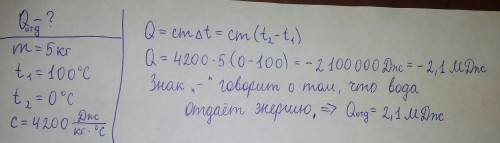 Qотд - ?
m = 5 кг
t₁ = 100°C
t₂ = 0°C
c = 4200 Дж/кг·°C
Q = cmΔt = cm(t₂-t₁)
Q = 4200·5(0-100) = -2100000 Дж = -2,1 МДж
Знак „-“ говорит о том, что вода
отдаёт энергию, ⇒ Qотд = 2,1 МДж